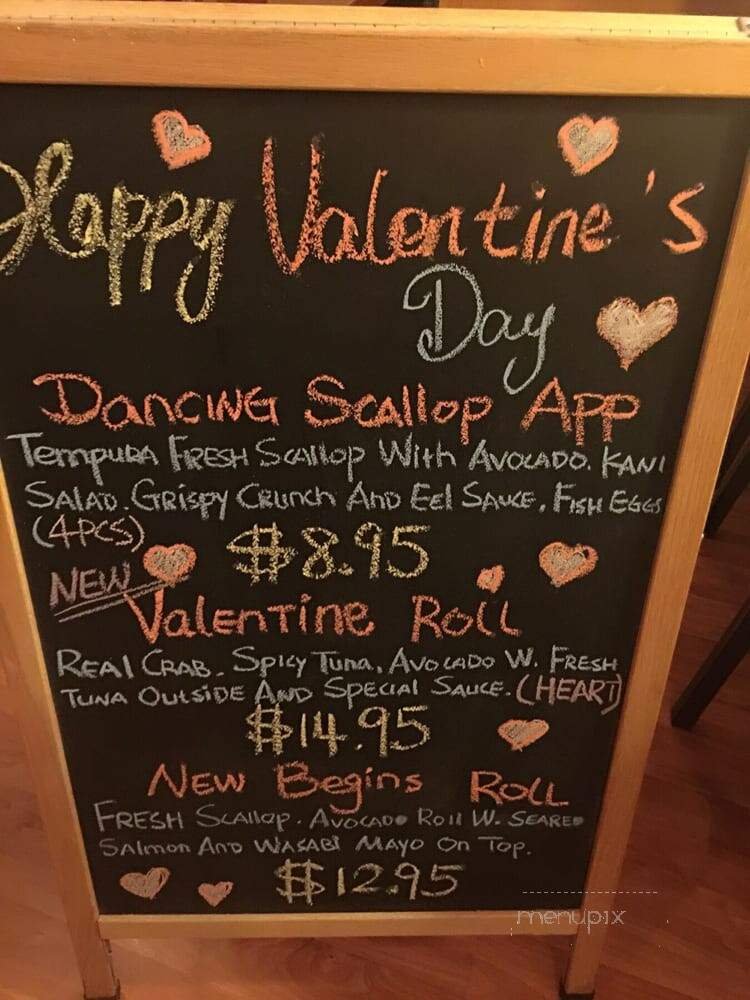 Happy Valentine's
Day
Dancing Scallop App
Tempura Fresh Scallop With Avocado. Kani
Salad. Grispy Crunch And Eel Sauce. Fish Eggs
(4PCS)
$8.95
NEW
Valentine Roll
Real Crab. Spicy Tuna, Avocado W. Fresh
Tuna Outside And Special Sauce. (HEART)
$14.95
New Begins Roll
Fresh Scallop. Avocado Roll W. Seared
Salmon And Wasabi Mayo On Top.
$12.95
menupix